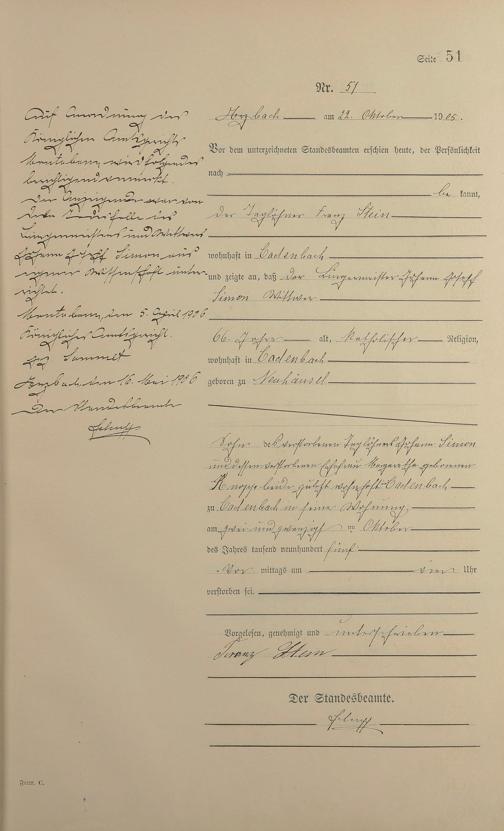 Seite 51
Nr. 51
Arzbach am 22. Oktober 1905.
Vor dem unterzeichneten Standesbeamten erschien heute, der Persönlichkeit
nach
be kannt,
der Taglöhner Franz Stein
wohnhaft in Cadenbach
und zeigte an, daß der Bürgermeister Johann Joseph
Simon Wittwer
66 Jahre alt, katholischer Religion,
wohnhaft in Cadenbach
geboren zu Neuhäusel
Sohn des verstorbenen Taglöhners Johann Simon
und dessen verstorbenen Ehefrau geborenen
zuletzt wohnhaft Cadenbach
zu Cadenbach in seiner Wohnung,
am zwei und zwanzigsten Oktober
des Jahres tausend neunhundert fünf
Vor mittags um vier Uhr
verstorben sei.
Vorgelesen, genehmigt und unterschrieben
Franz Stein
Der Standesbeamte.
Auf Anordnung des
Königlichen Amtsgerichts
Montabaur wird folgendes
berichtigend vermerkt.
Der Anzeigende war von
dem Sterbefalle des
Bürgermeisters und Wittwers
Johann Joseph Simon aus
eigener Wissenschaft unter-
richtet.
Montabaur, den 5. April 1906
Königliches Amtsgericht.
Arzbach den 16. Mai 1906
Der Standesbeamte
Form. C.